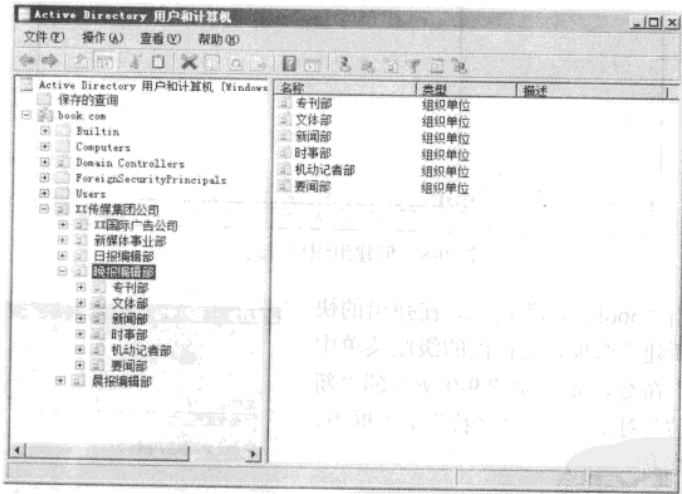 Active Directory 用户和计算机
文件(F) 操作(A) 查看(V) 帮助(H)
Active Directory 用户和计算机 [Windows
保存的查询
book.com
Builtin
Computers
Domain Controllers
ForeignSecurityPrincipals
Users
XX传媒集团公司
XX国际广告公司
新媒体事业部
日报编辑部
晚报编辑部
专刊部
文体部
新闻部
时事部
机动记者部
要闻部
晨报编辑部
名称 类型 描述
专刊部 组织单位
文体部 组织单位
新闻部 组织单位
时事部 组织单位
机动记者部 组织单位
要闻部 组织单位